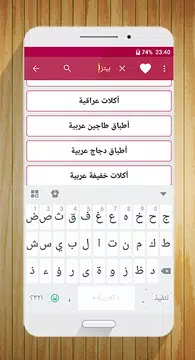 74% 23:40
بيتزا
أكلات عراقية
أطباق طاجين عربية
أطباق دجاج عربية
أكلات خفيفة عربية
ض ص ث ق ف غ ع ه خ ح ج
ش س ي ب ل ا ت ن م ك ط
ذ ء ؤ ر ى ة و ز ظ د
؟١٢٣ العربية تنفيذ